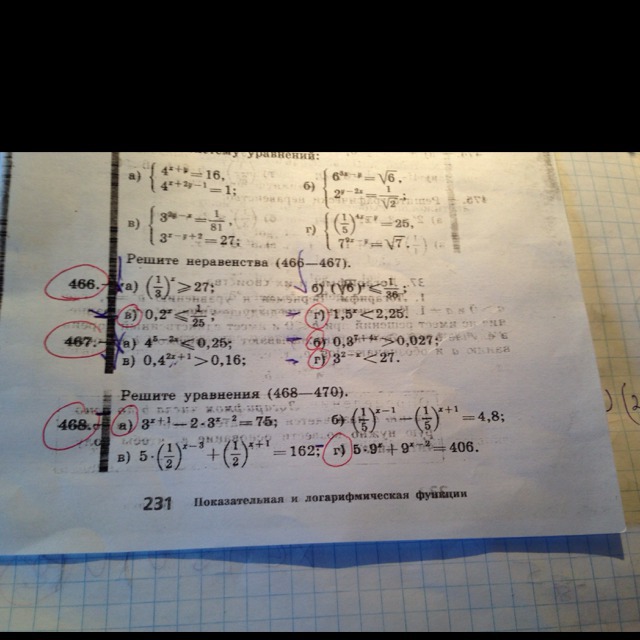 уравнений:
а) { 4^{x+y} = 16,
4^{x+2y-1} = 1;
б) { 6^{3y-x} = √6,
2^{y-2x} = 1/√2;
в) { 3^{3y-x} = 1/81,
3^{x-y+2} = 27;
г) { (1/5)^{4x-y} = 25,
7^{2x-y} = √7.
Решите неравенства (466—467).
466. а) (1/3)^x ⩾ 27; б) (√6)^x ⩽ 1/36;
в) 0,2^x ⩽ 1/25; г) 1,5^x < 2,25.
467. а) 4^{5-2x} ⩽ 0,25; б) 0,3^{7+4x} > 0,027;
в) 0,4^{2x+1} > 0,16; г) 3^{2-x} < 27.
Решите уравнения (468—470).
468. а) 3^{x+1} - 2·3^{x-2} = 75; б) (1/5)^{x-1} - (1/5)^{x+1} = 4,8;
в) 5·(1/2)^{x-3} + (1/2)^{x+1} = 162; г) 5·9^x + 9^{x-2} = 406.
231 Показательная и логарифмическая функции